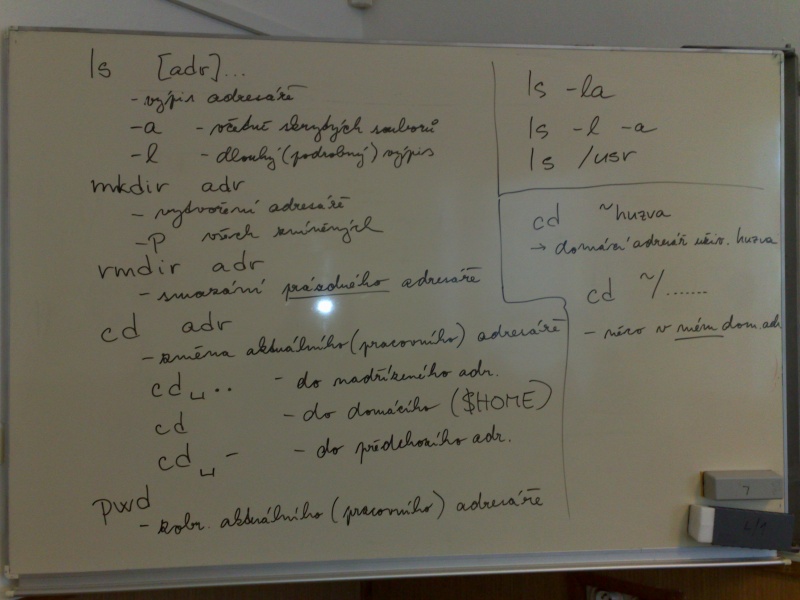 ls [adr]...
- výpis adresáře
-a - včetně skrytých souborů
-l - dlouhý (podrobný) výpis
mkdir adr
- vytvoření adresáře
-p všech zmíněných
rmdir adr
- smazání prázdného adresáře
cd adr
- změna aktuálního (pracovního) adresáře
cd␣.. - do nadřízeného adr.
cd - do domácího ($HOME)
cd␣- - do předchozího adr.
pwd
- zobr. aktuálního (pracovního) adresáře
ls -la
ls -l -a
ls /usr
cd ~huzva
→ domácí adresář uživ. huzva
cd ~/.......
- něco v mém dom. adr